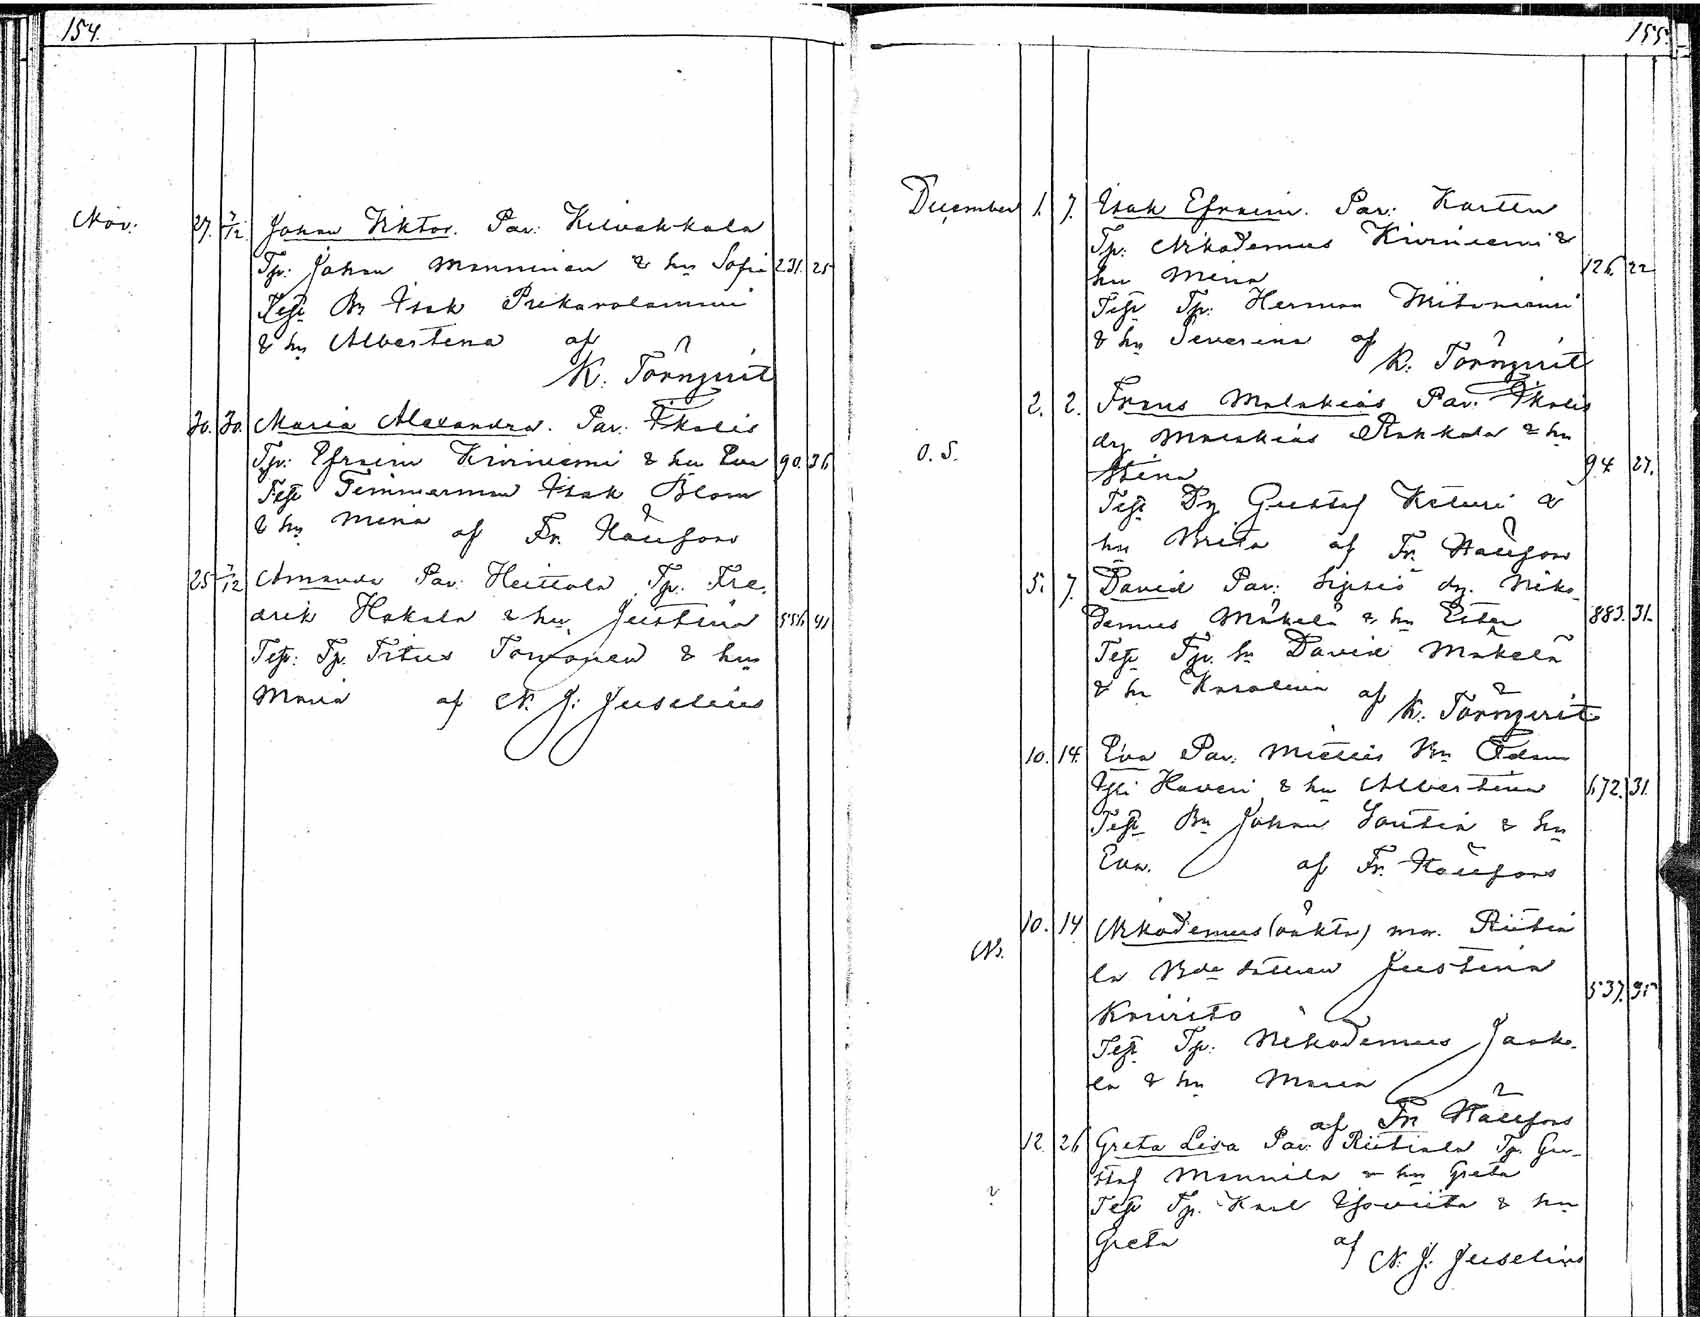 154.
Nov. 27. 7/12 Johan Viktor. Par: Kilvakkala
Tp: Johan Manninen & hu Sofia 231. 25
Test Bn Isak
& hu Albertina af
K. Törnqvist
30. 30. Maria Alexandra. Par: Ikalis
Tp: Efraim Kiviniemi & hu Eva 90. 36
Test Timmerman Isak Blom
& hu Mina af Fr. Hällfors
25 7/12 Amanda Par: Heittola Tp. Fre-
drik Hakala & hu Justina 556 41
Test: Tp. Titus & hu
Maria af N. J. Juselius
155.
December 1. 7. Isak Efraim. Par: Karttu
Tp: Nikodemus Kiviniemi &
hu Mina 126. 22
Test Tp: Herman
& hu Severina af
K. Törnqvist
2. 2. Frans Malakias Par: Ikalis
O. S. dy Malakias Rahkola & hu
Stina 94 27.
Test Dy Gustaf Keturi &
hu Brita af Fr. Hällfors
5. 7. David Par: Sipsiö dy. Niko-
demus Mäkelä & hu Ester 883. 31.
Test Tp. Sn David Mäkelä
& hu Karolina af
K. Törnqvist
10. 14. Eva Par: Bn Adam
Haveri & hu Albertina 672. 31.
Test Bn Johan & hu
Eva. af Fr. Hällfors
10. 14 Nikodemus (oäkta) mor. Riitia
N. la Bde dottren Justina
537. 35
Test Tp: Nikodemus Jaako-
la & hu Maria
af Fr Hällfors
12. 26 Greta Lisa Par: Riitiala Tp. Gu-
staf Mannila & hu Greta
Test Tp. Karl & hu
Greta af
N. J. Juselius